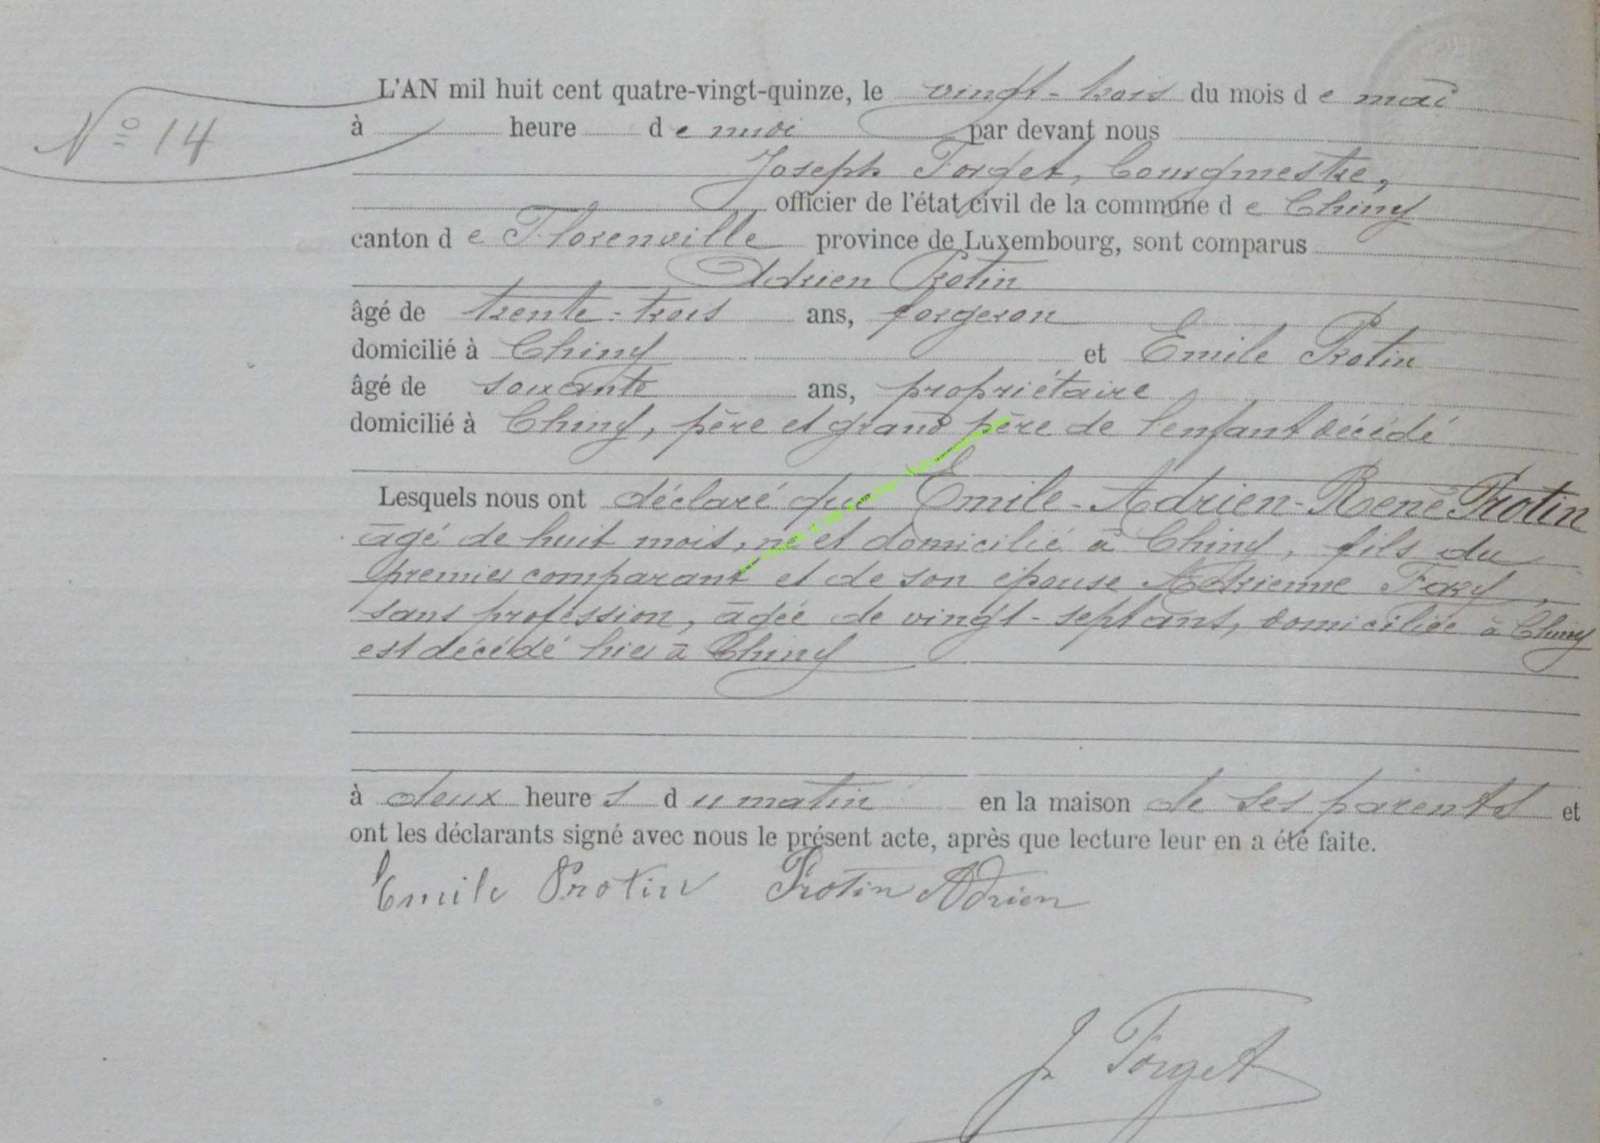 L'AN mil huit cent quatre-vingt-quinze, le vingt-trois du mois de mai
N° 14
à heure de midi par devant nous
Joseph Forget, bourgmestre,
officier de l'état civil de la commune de Chiny
canton de Florenville province de Luxembourg, sont comparus
Adrien Protin
âgé de trente-trois ans, forgeron
domicilié à Chiny et Emile Protin
âgé de soixante ans, propriétaire
domicilié à Chiny, père et grand père de l'enfant décédé
Lesquels nous ont déclaré que Emile-Adrien-René Protin
âgé de huit mois, né et domicilié à Chiny, fils du
premier comparant et de son épouse Adrienne
sans profession, âgée de vingt-sept ans, domiciliée à Chiny
est décédé hier à Chiny
à deux heures du matin en la maison de ses parents et
ont les déclarants signé avec nous le présent acte, après que lecture leur en a été faite.
Emile Protin Protin Adrien
J. Forget